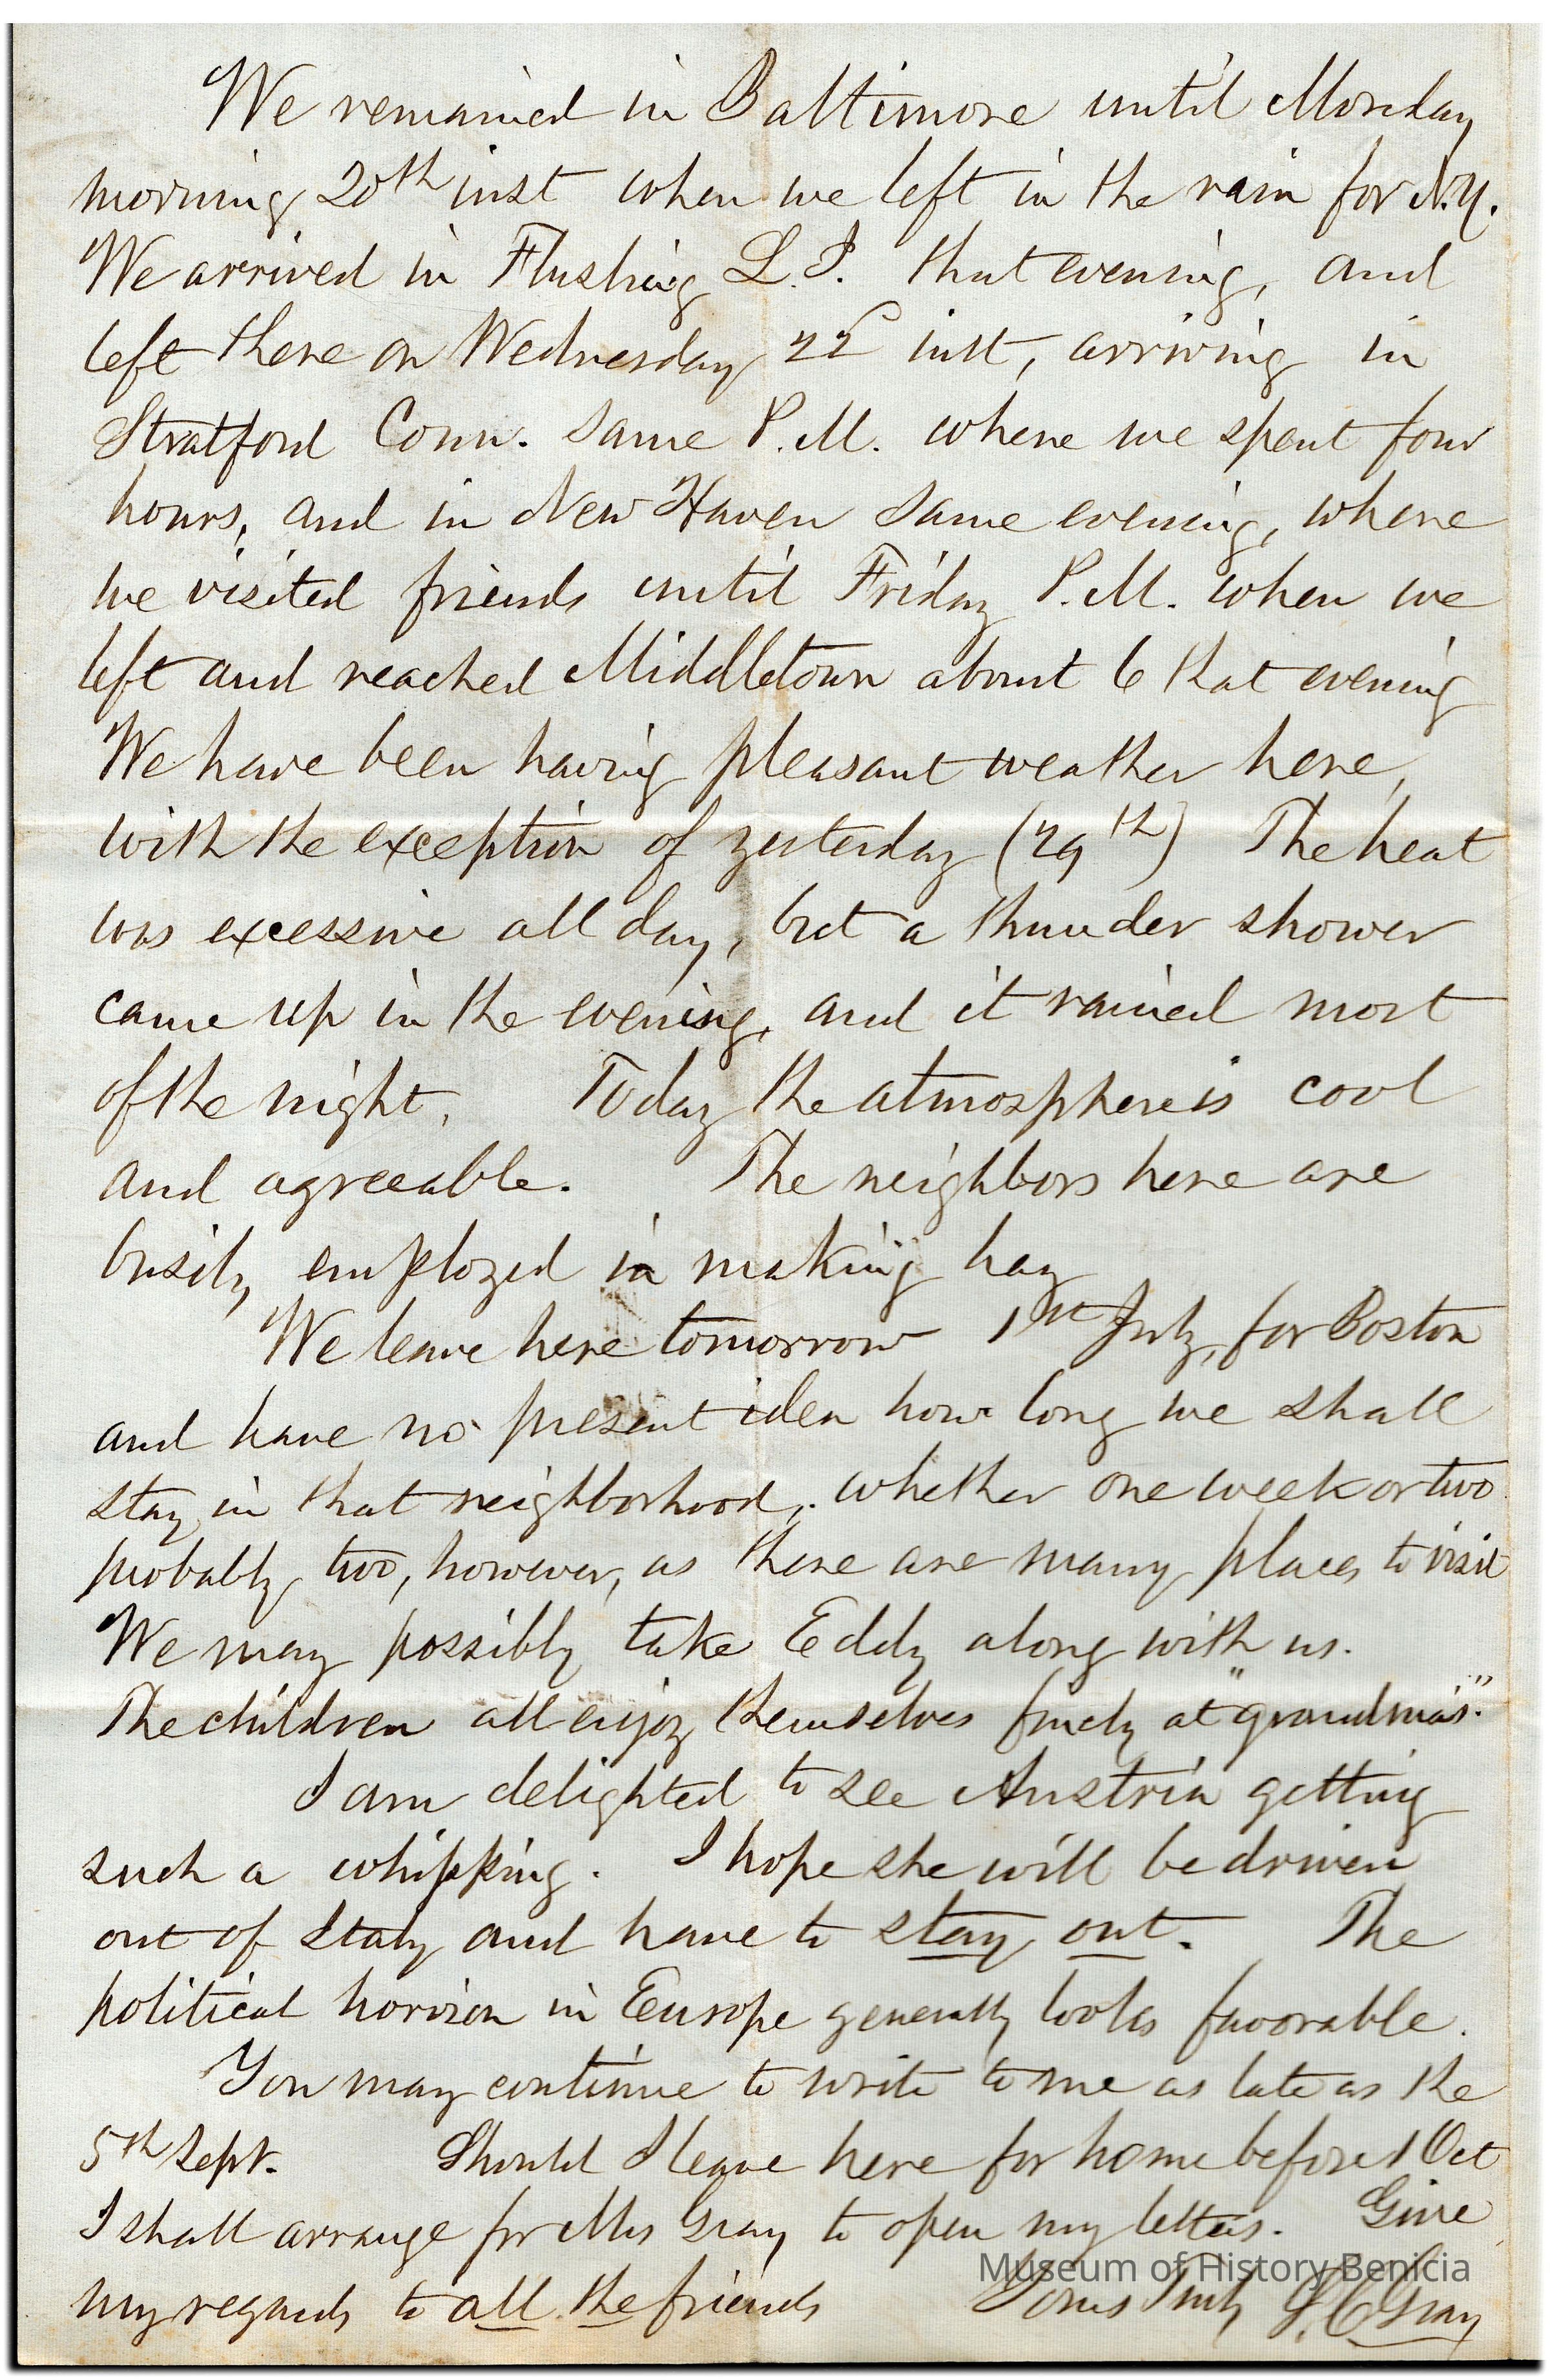 We remained in Baltimore until Monday
morning 20th inst when we left in the rain for N.Y.
We arrived in Flushing L.I. that evening, and
left there on Wednesday 22d inst, arriving in
Stratford Conn. same P.M. where we spent four
hours, and in New Haven same evening, where
we visited friends until Friday P.M. when we
left and reached Middletown about 6 that evening
We have been having pleasant weather here,
with the exception of yesterday (29th) The heat
was excessive all day, but a thunder shower
came up in the evening, and it rained most
of the night. Today the atmosphere is cool
and agreeable. The neighbors here are
busily employed in making hay
We leave here tomorrow 1st July, for Boston
and have no present idea how long we shall
stay in that neighborhood, whether one week or two
probably two, however, as there are many places to visit
We may possibly take Eddy along with us.
The children all enjoy themselves finely at "grandma's".
I am delighted to see Austria getting
such a whipping. I hope she will be driven
out of Italy and have to stay out. The
political horizon in Europe generally looks favorable.
You may continue to write to me as late as the
5th Sept. Should I leave here for home before 1 Oct
I shall arrange for Mrs Gray to open my letters. Give
my regards to all the friends Yours truly L.C. Gray
Museum of History Benicia